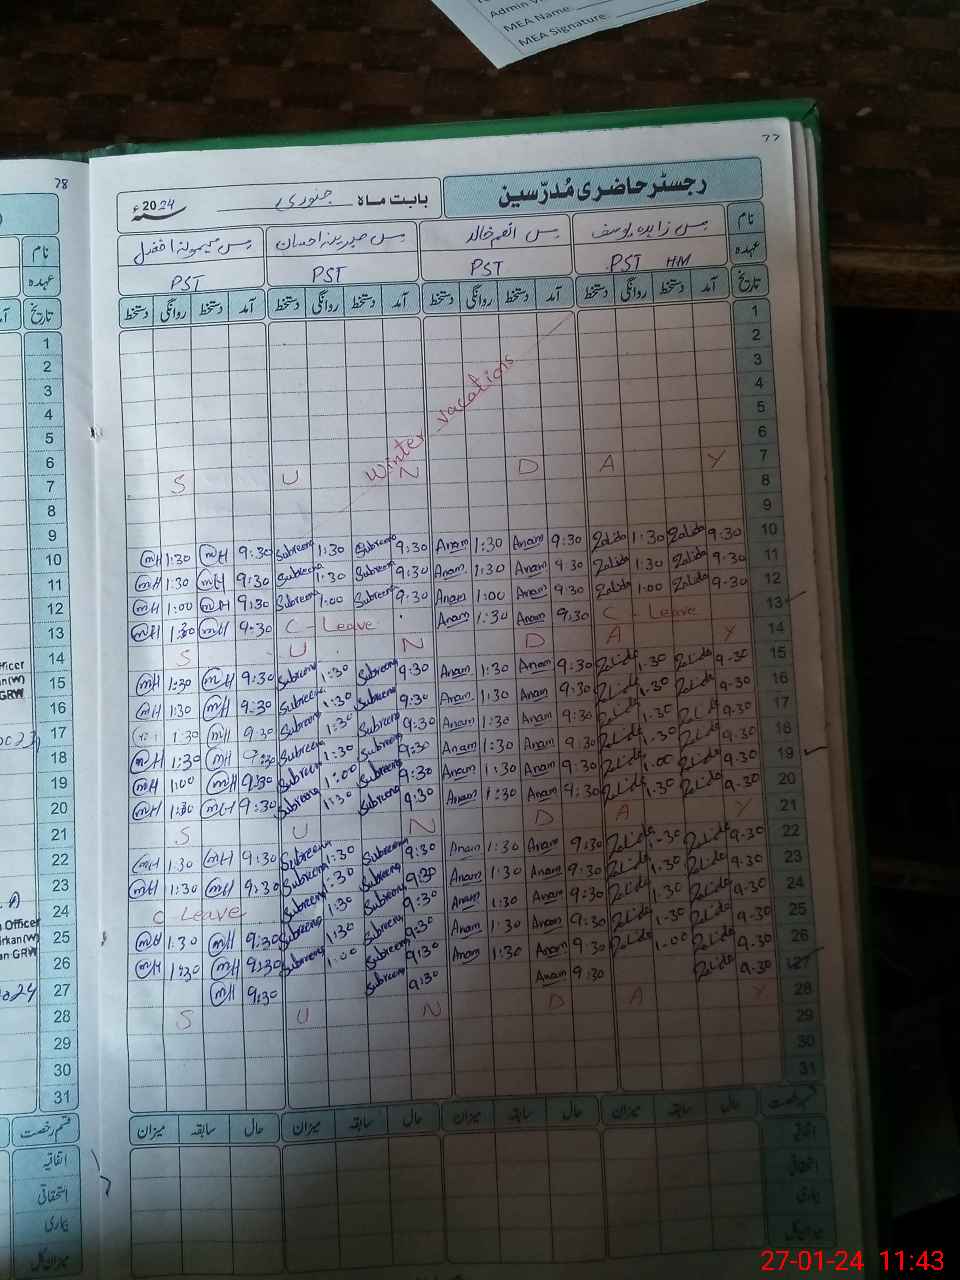 Admin V
MEA Name:
MEA Signature:
77
78
رجسٹر حاضری مُدرّسین
بابت ماہ جنوری 2024ء
نام
مس زاہدہ یوسف
مس انعم خالد
عہدہ
PST HM
PST
PST
PST
تاریخ آمد دستخط روانگی دستخط آمد دستخط روانگی دستخط آمد دستخط روانگی دستخط آمد دستخط روانگی دستخط
1
2
3
4
5
6
Winter vacations
7 S U N D A Y
8
9
10 mH 1:30 mH 9:30 Subreena 1:30 Subreena 9:30 Anam 1:30 Anam 9:30 Zahida 1:30 Zahida 9:30
11 mH 1:30 mH 9:30 Subreena 1:30 Subreena 9:30 Anam 1:30 Anam 9:30 Zahida 1:30 Zahida 9:30
12 mH 1:00 mH 9:30 Subreena 1:00 Subreena 9:30 Anam 1:00 Anam 9:30 Zahida 1:00 Zahida 9:30
13 mH 1:30 mH 9:30 C - Leave Anam 1:30 Anam 9:30 C - Leave
14 S U N D A Y
15 mH 1:30 mH 9:30 Subreena 1:30 Subreena 9:30 Anam 1:30 Anam 9:30 Zahida 1:30 Zahida 9:30
16 mH 1:30 mH 9:30 Subreena 1:30 Subreena 9:30 Anam 1:30 Anam 9:30 Zahida 1:30 Zahida 9:30
17 1:30 mH 9:30 Subreena 1:30 Subreena 9:30 Anam 1:30 Anam 9:30 Zahida 1:30 Zahida 9:30
18 mH 1:30 mH 9:30 Subreena 1:30 Subreena 9:30 Anam 1:30 Anam 9:30 Zahida 1:30 Zahida 9:30
19 mH 1:00 mH 9:30 Subreena 1:00 Subreena 9:30 Anam 1:30 Anam 9:30 Zahida 1:00 Zahida 9:30
20 mH 1:30 mH 9:30 Subreena 1:30 Subreena 9:30 Anam 1:30 Anam 9:30 Zahida 1:30 Zahida 9:30
21 S U N D A Y
22 mH 1:30 mH 9:30 Subreena 1:30 Subreena 9:30 Anam 1:30 Anam 9:30 Zahida 1:30 Zahida 9:30
23 mH 1:30 mH 9:30 Subreena 1:30 Subreena 9:30 Anam 1:30 Anam 9:30 Zahida 1:30 Zahida 9:30
24 C Leave Subreena 1:30 Subreena 9:30 Anam 1:30 Anam 9:30 Zahida 1:30 Zahida 9:30
25 mH 1:30 mH 9:30 Subreena 1:30 Subreena 9:30 Anam 1:30 Anam 9:30 Zahida 1:30 Zahida 9:30
26 mH 1:30 mH 9:30 Subreena 1:00 Subreena 9:30 Anam 1:30 Anam 9:30 Zahida 1:00 Zahida 9:30
27 mH 9:30 Subreena 9:30 Anam 9:30 Zahida 9:30
28 S U N D A Y
29
30
31
قسم رخصت حال سابقہ میزان حال سابقہ میزان حال سابقہ میزان حال سابقہ میزان
اتفاقیہ
استحقاقی
بیماری
میزان کل
27-01-24 11:43